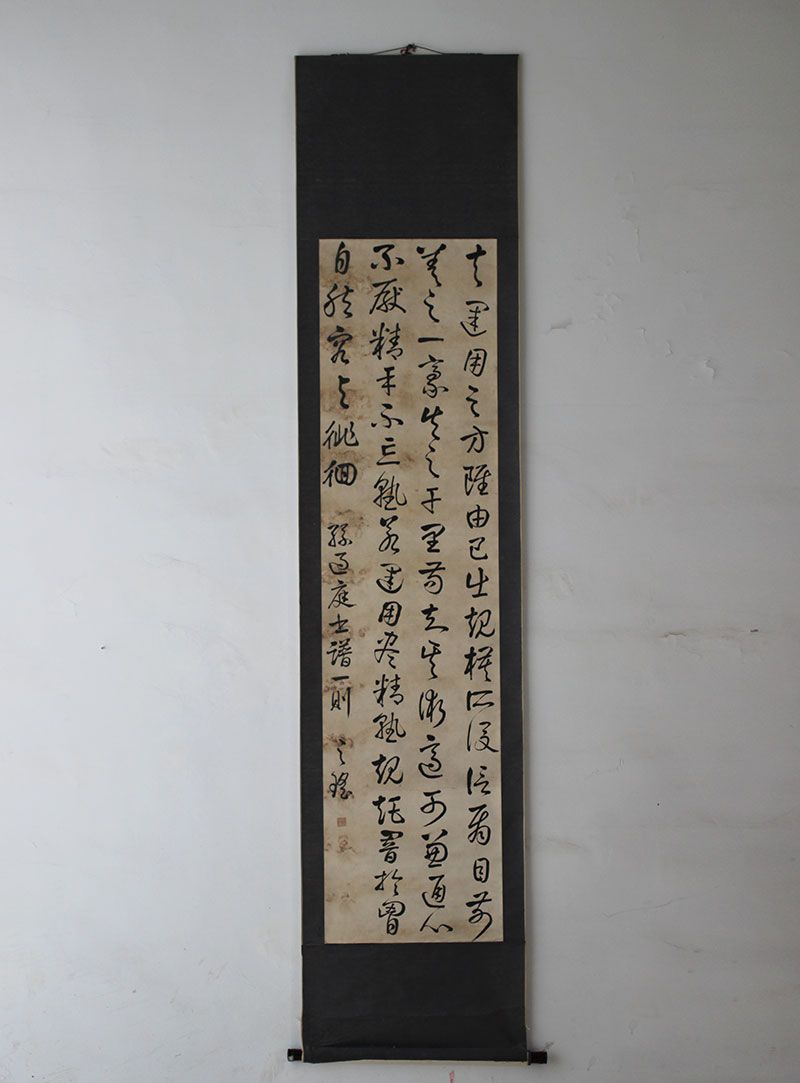 夫運用之方雖由己出規模所設信屬目前
差之一豪失之千里苟知其術適可兼通心
不厭精手不忘熟若運用盡精熟規矩闇於胷
自然容與徘徊 孫過庭書譜一則 之瑤